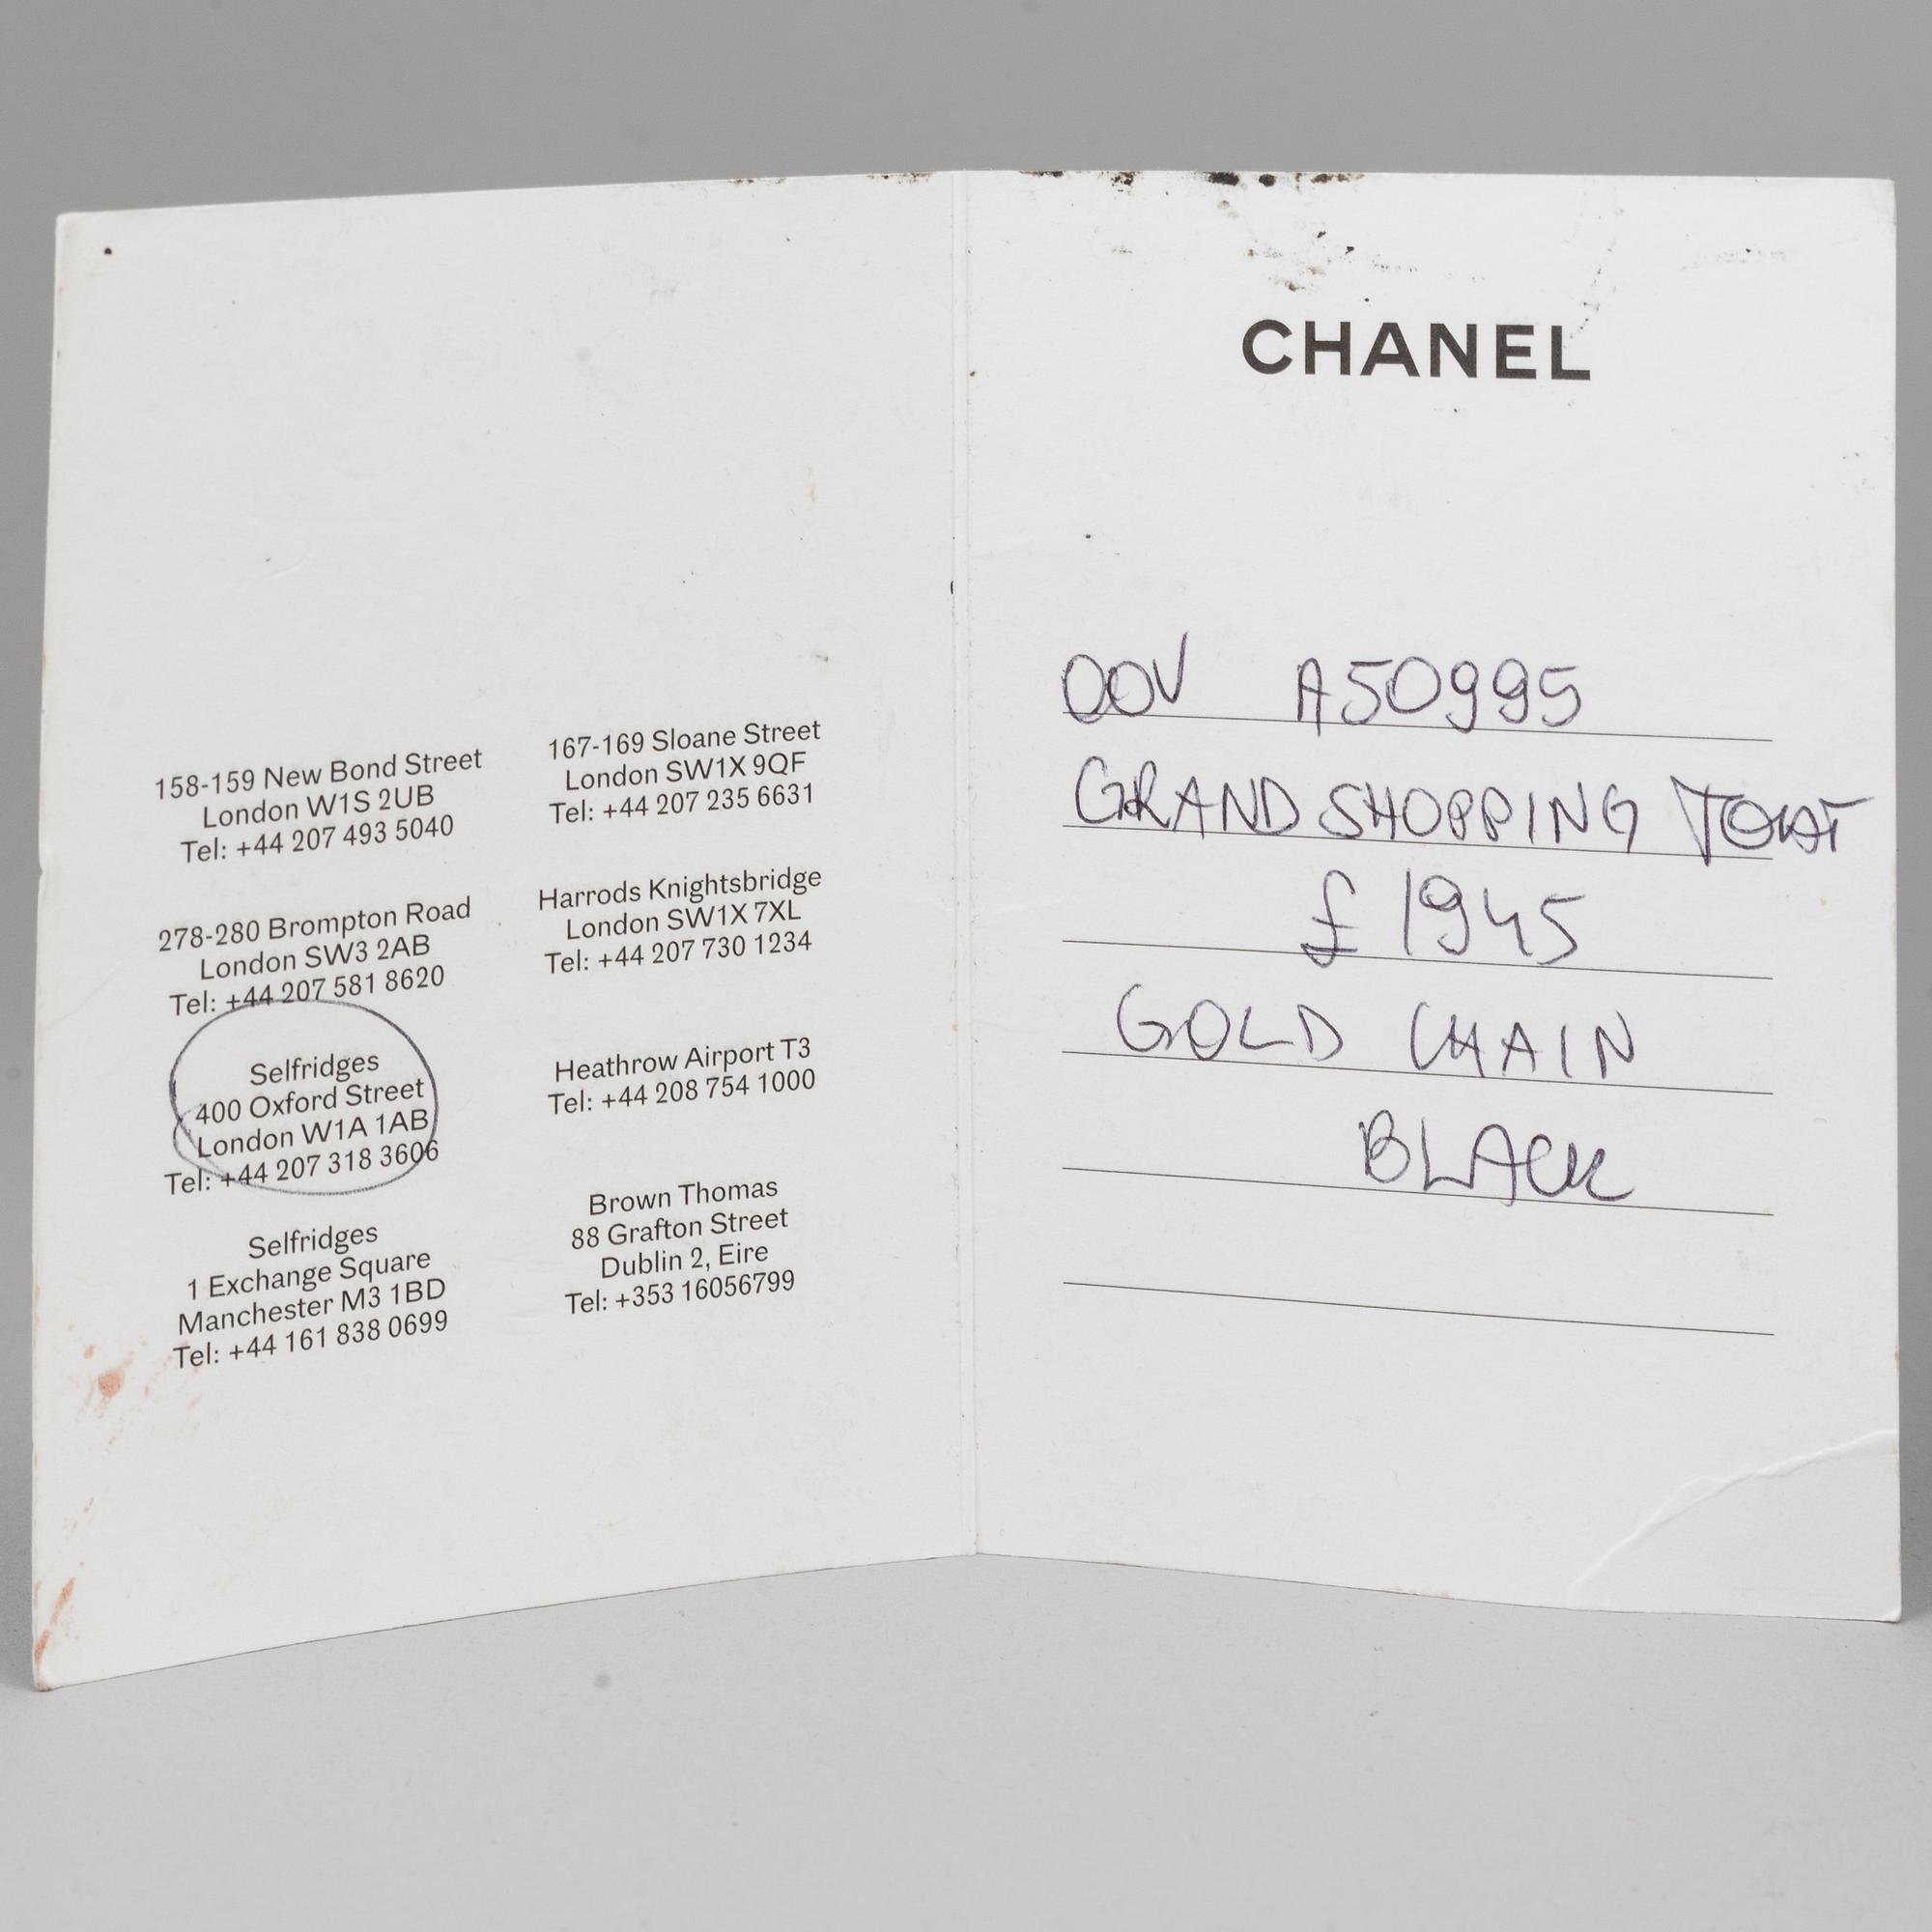 158-159 New Bond Street
London W1S 2UB
Tel: +44 207 493 5040
278-280 Brompton Road
London SW3 2AB
Tel: +44 207 581 8620
Selfridges
400 Oxford Street
London W1A 1AB
Tel: +44 207 318 3606
Selfridges
1 Exchange Square
Manchester M3 1BD
Tel: +44 161 838 0699
167-169 Sloane Street
London SW1X 9QF
Tel: +44 207 235 6631
Harrods Knightsbridge
London SW1X 7XL
Tel: +44 207 730 1234
Heathrow Airport T3
Tel: +44 208 754 1000
Brown Thomas
88 Grafton Street
Dublin 2, Eire
Tel: +353 16056799
CHANEL
OOV A50995
GRAND SHOPPING
£1945
GOLD CHAIN
BLACK